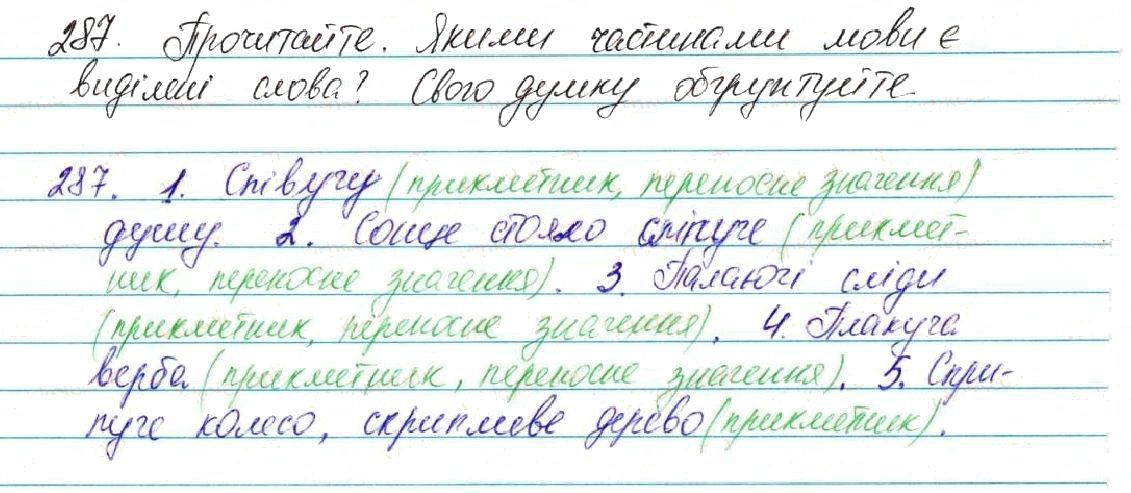 287. Прочитайте. Якими частинами мови є
виділені слова? Свого думку обґрунтуйте
287. 1. Співучу (прикметник, переносне значення)
душу. 2. Сонце стояло сліпуче (прикмет-
ник, переносне значення). 3. Палаючі сліди
(прикметник, переносне значення). 4. Плакуча
верба (прикметник, переносне значення). 5. Скри-
пуче колесо, скрипливе дерево (прикметник).